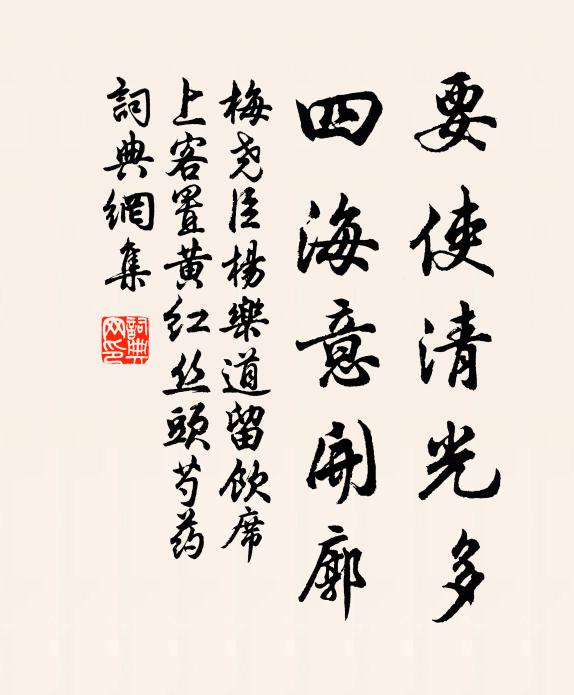 要使清光多
四海意開廓
梅尧臣楊樂道留飲席
上客置黄红丝頭芍药
詞典網集
詞典网印